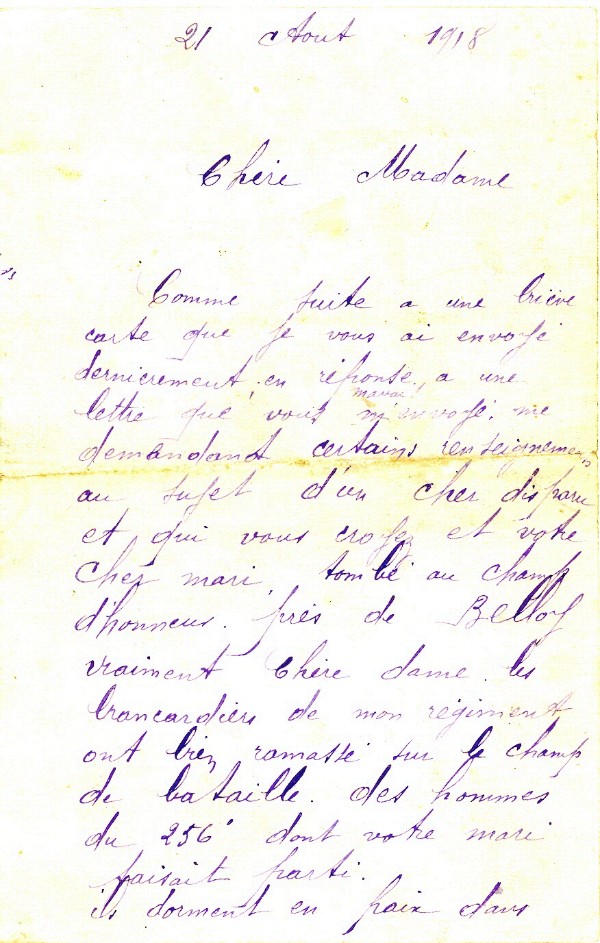 21 Aout 1918
Chère Madame
Comme suite a une briève
carte que je vous ai envoyé
dernierement, en réponse, a une
lettre que vous m'avai m'envoyé, me
demandant certains renseignements
au sujet d'un cher disparu
et qui vous croyez et votre
cher mari, tombé au champ
d'honneur. près de Belloy
vraiment Chère dame les
brancardiers de mon régiment
ont bien ramassé sur le champ
de bataille. des hommes
du 256e dont votre mari
faisait parti.
ils dorment en paix dans